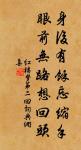 身後有餘忘縮手
眼前無路想回頭
紅樓夢第二回詞典網
集